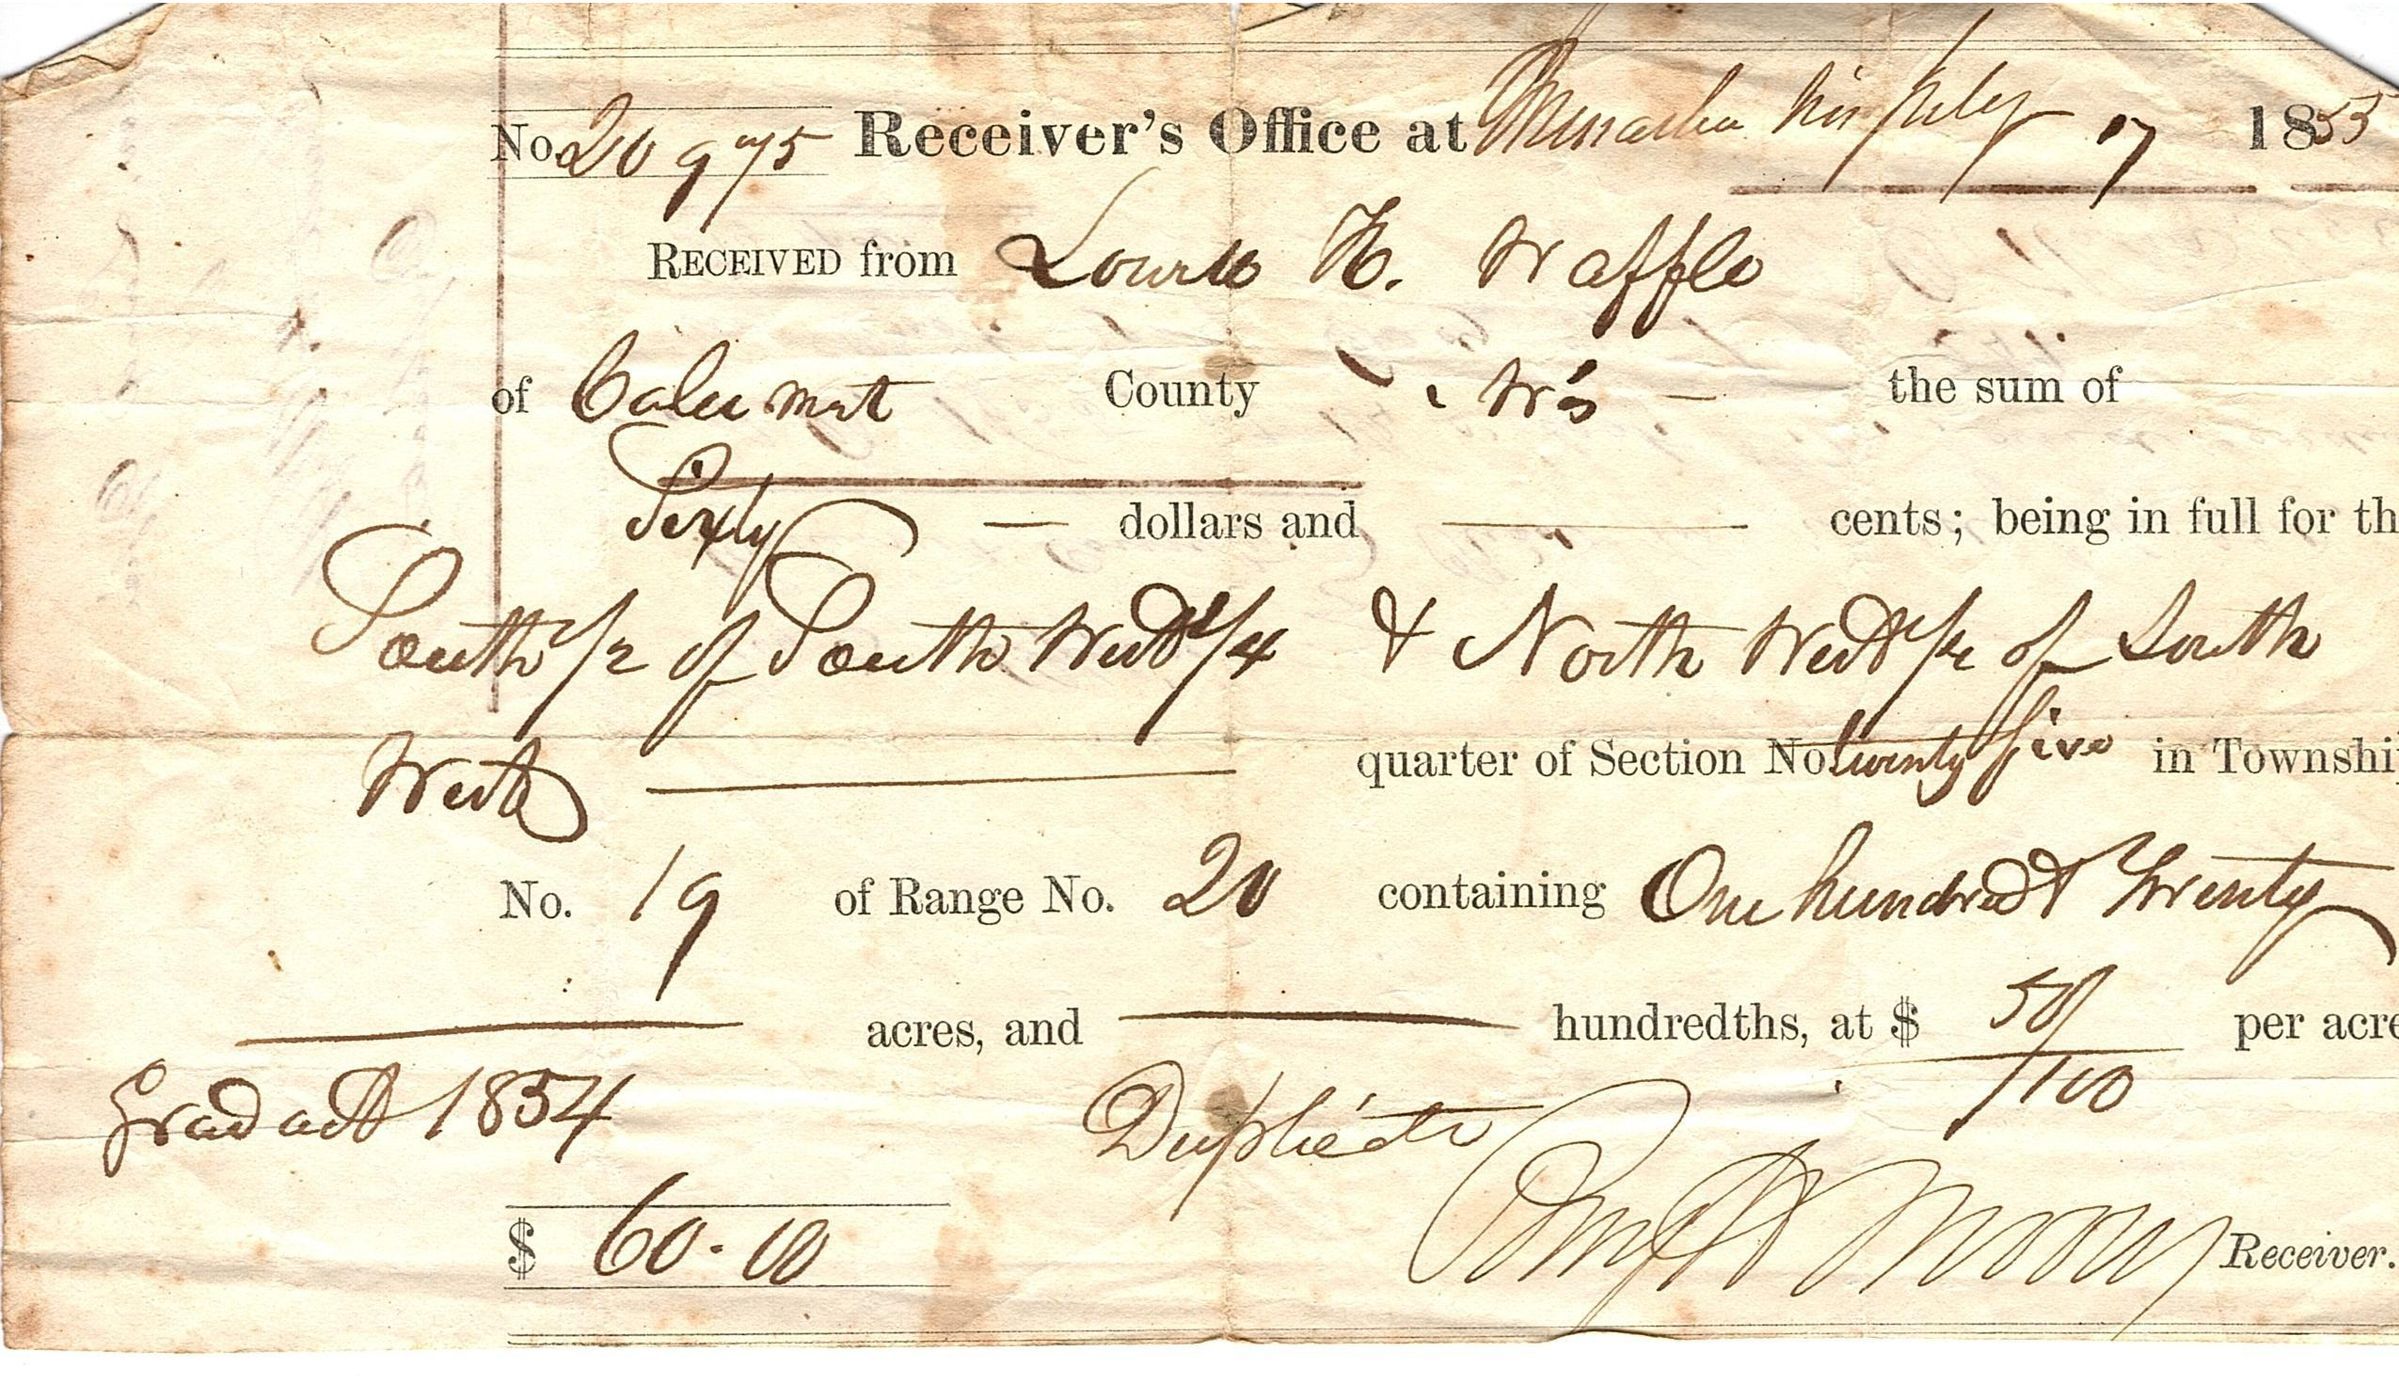 No. 20975 Receiver's Office at Menasha Wis July 17 1855
RECEIVED from H. Waffle
of Calumet County Wis — the sum of
Sixty — dollars and — cents; being in full for th
South 1/2 of South West 1/4 & North West 1/4 of South
West — quarter of Section No. twenty five in Townshi
No. 19 of Range No. 20 containing One hundred & Twenty
— acres, and — hundredths, at $ 50/100 per acre
Grad act 1854 Duplicate
$ 60.00 Receiver.